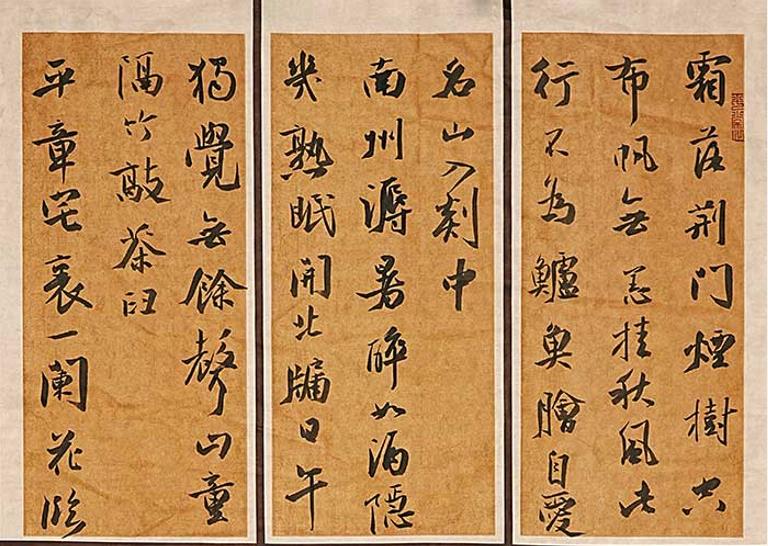 霜落荆門煙樹空
布帆無恙挂秋風此
行不為鱸魚膾自愛
名山入剡中
南州溽暑醉如酒隱
几熟眠開北牖日午
獨覺無餘聲山童
隔竹敲茶臼
平章宅裏一闌花臨